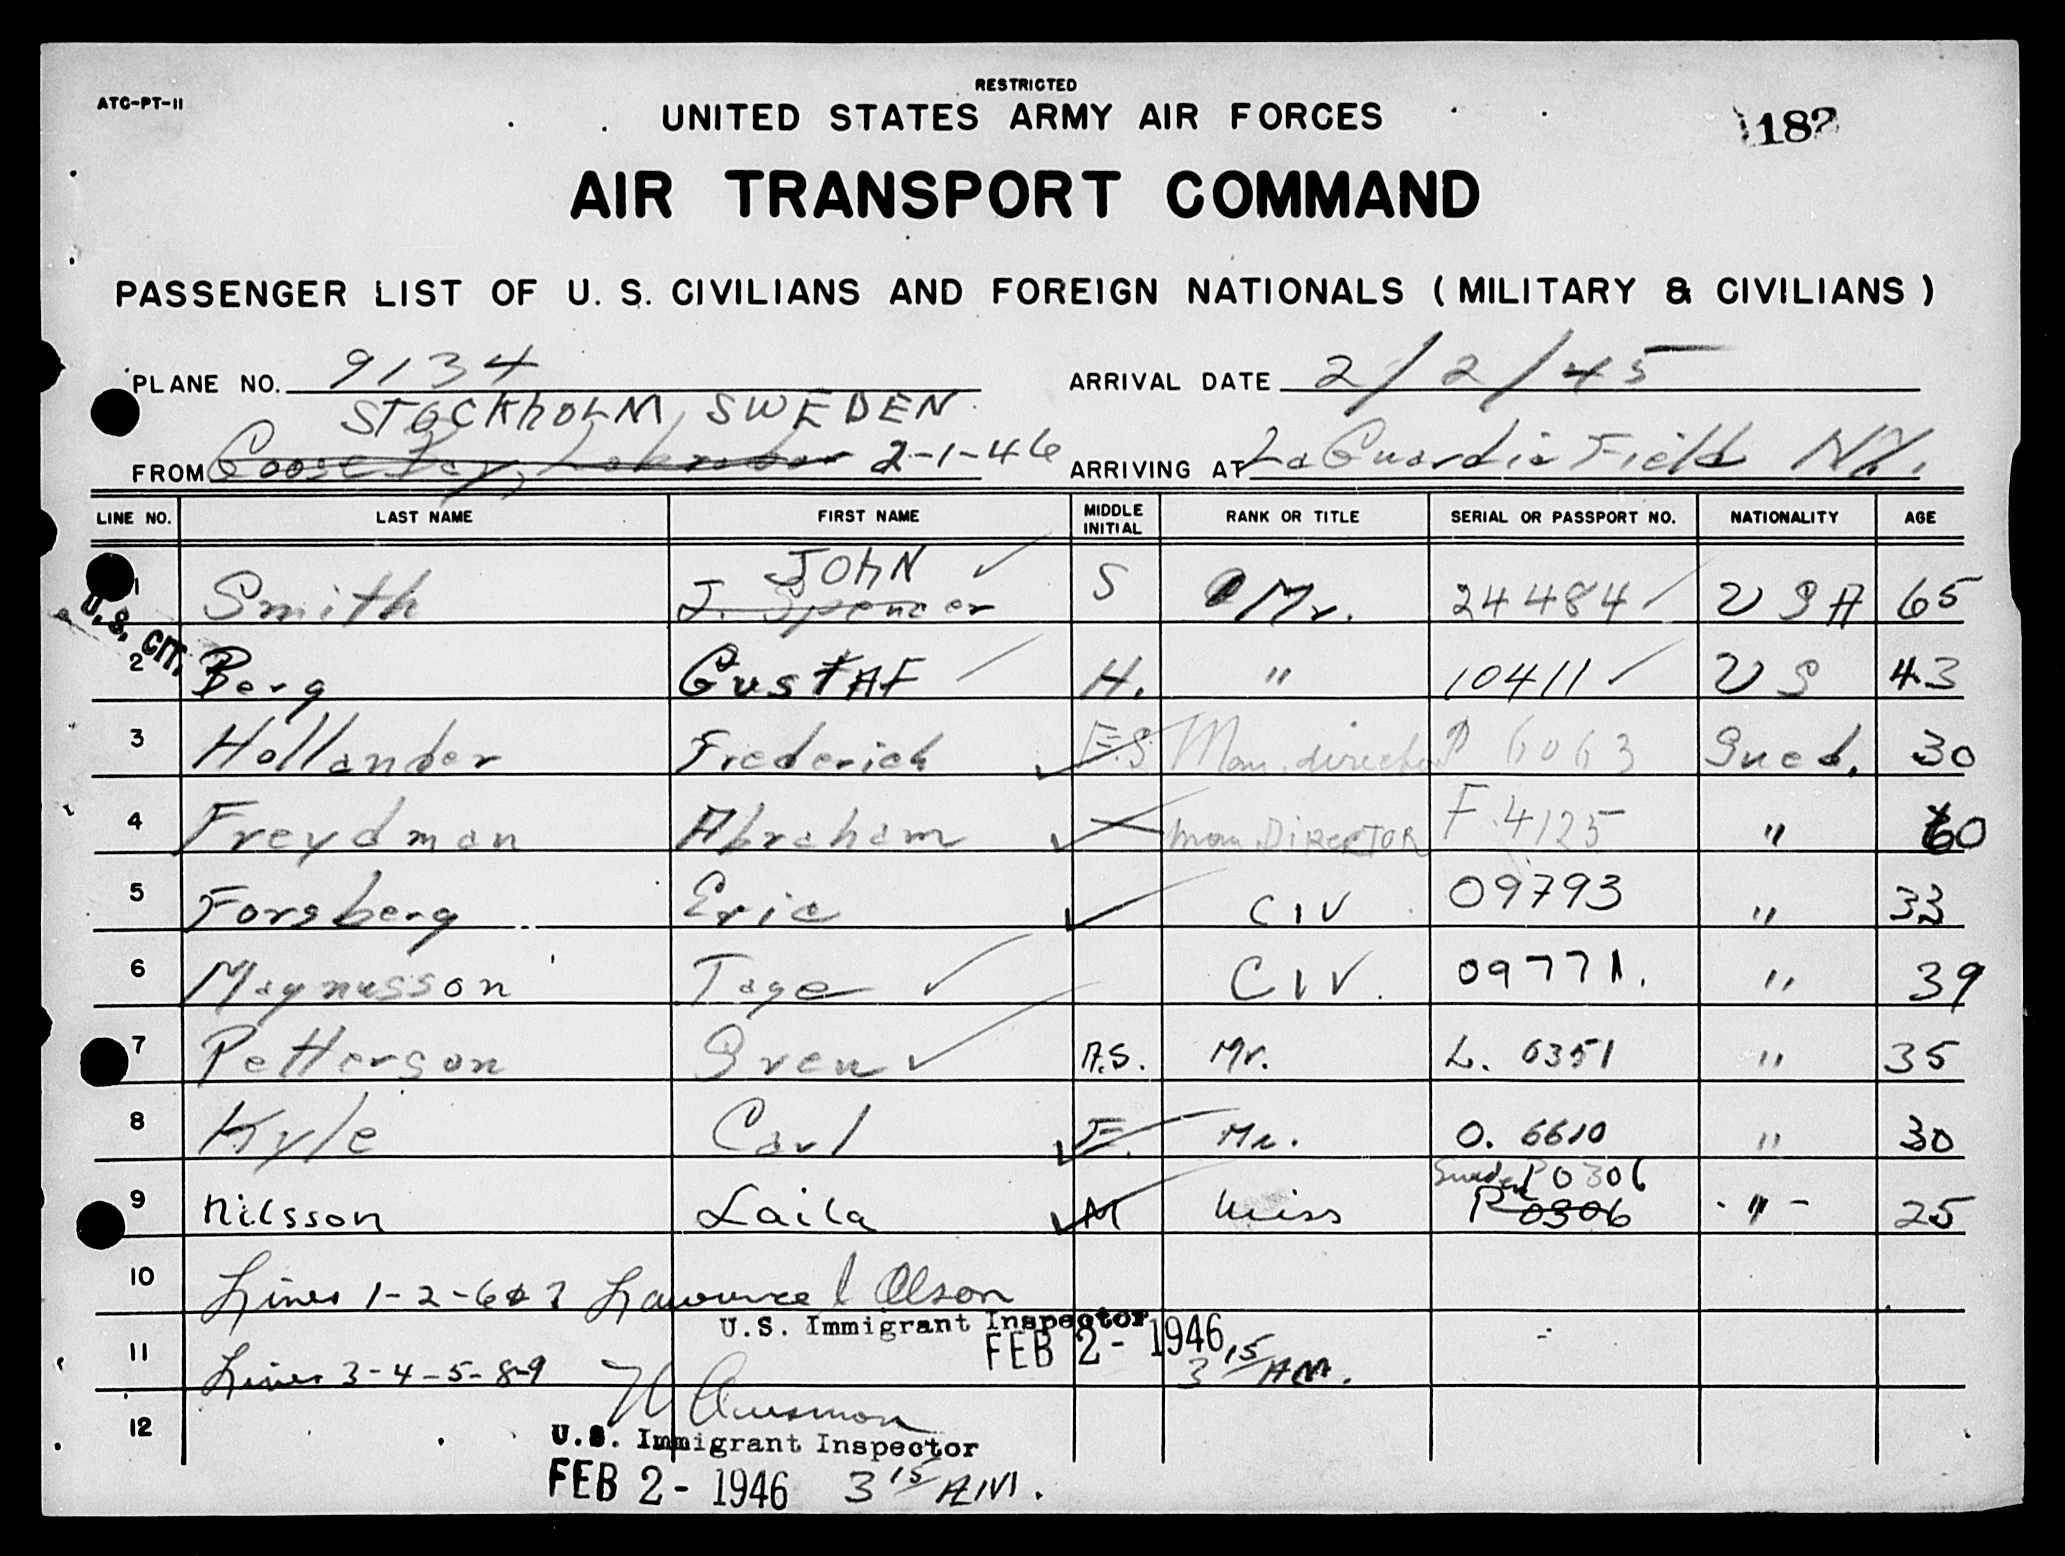 RESTRICTED
ATC-PT-11
UNITED STATES ARMY AIR FORCES
182
AIR TRANSPORT COMMAND
PASSENGER LIST OF U. S. CIVILIANS AND FOREIGN NATIONALS ( MILITARY & CIVILIANS )
PLANE NO. 9134 ARRIVAL DATE 2/2/45
STOCKHOLM, SWEDEN
FROM Goose Bay, Labrador 2-1-46 ARRIVING AT LaGuardia Field NY.
LINE NO. LAST NAME FIRST NAME MIDDLE INITIAL RANK OR TITLE SERIAL OR PASSPORT NO. NATIONALITY AGE
JOHN
1 Smith J. Spencer S Mr. 24484 USA 65
U.S. CIT.
2 Berg GustAF H. " 10411 US 43
3 Hollander Frederick F.S. Man. director P 6063 Swed. 30
4 Freydman Abraham Man. DIRECTOR F.4125 " 60
5 Forsberg Eric CIV 09793 " 33
6 Magnusson Tage CIV. 09771. " 39
7 Petterson Sven A.S. Mr. L. 0351 " 35
8 Kyle Carl F. Mr. O. 6610 " 30
Sweden P0306
9 Nilsson Laila M Miss P 0306 - " - 25
10 Lines 1-2-6&7 Lawrence J Olson
U.S. Immigrant Inspector
FEB 2- 1946 3 15/ AM.
11 Lines 3-4-5-8-9
12
U.S. Immigrant Inspector
FEB 2- 1946 3 15/ AM.